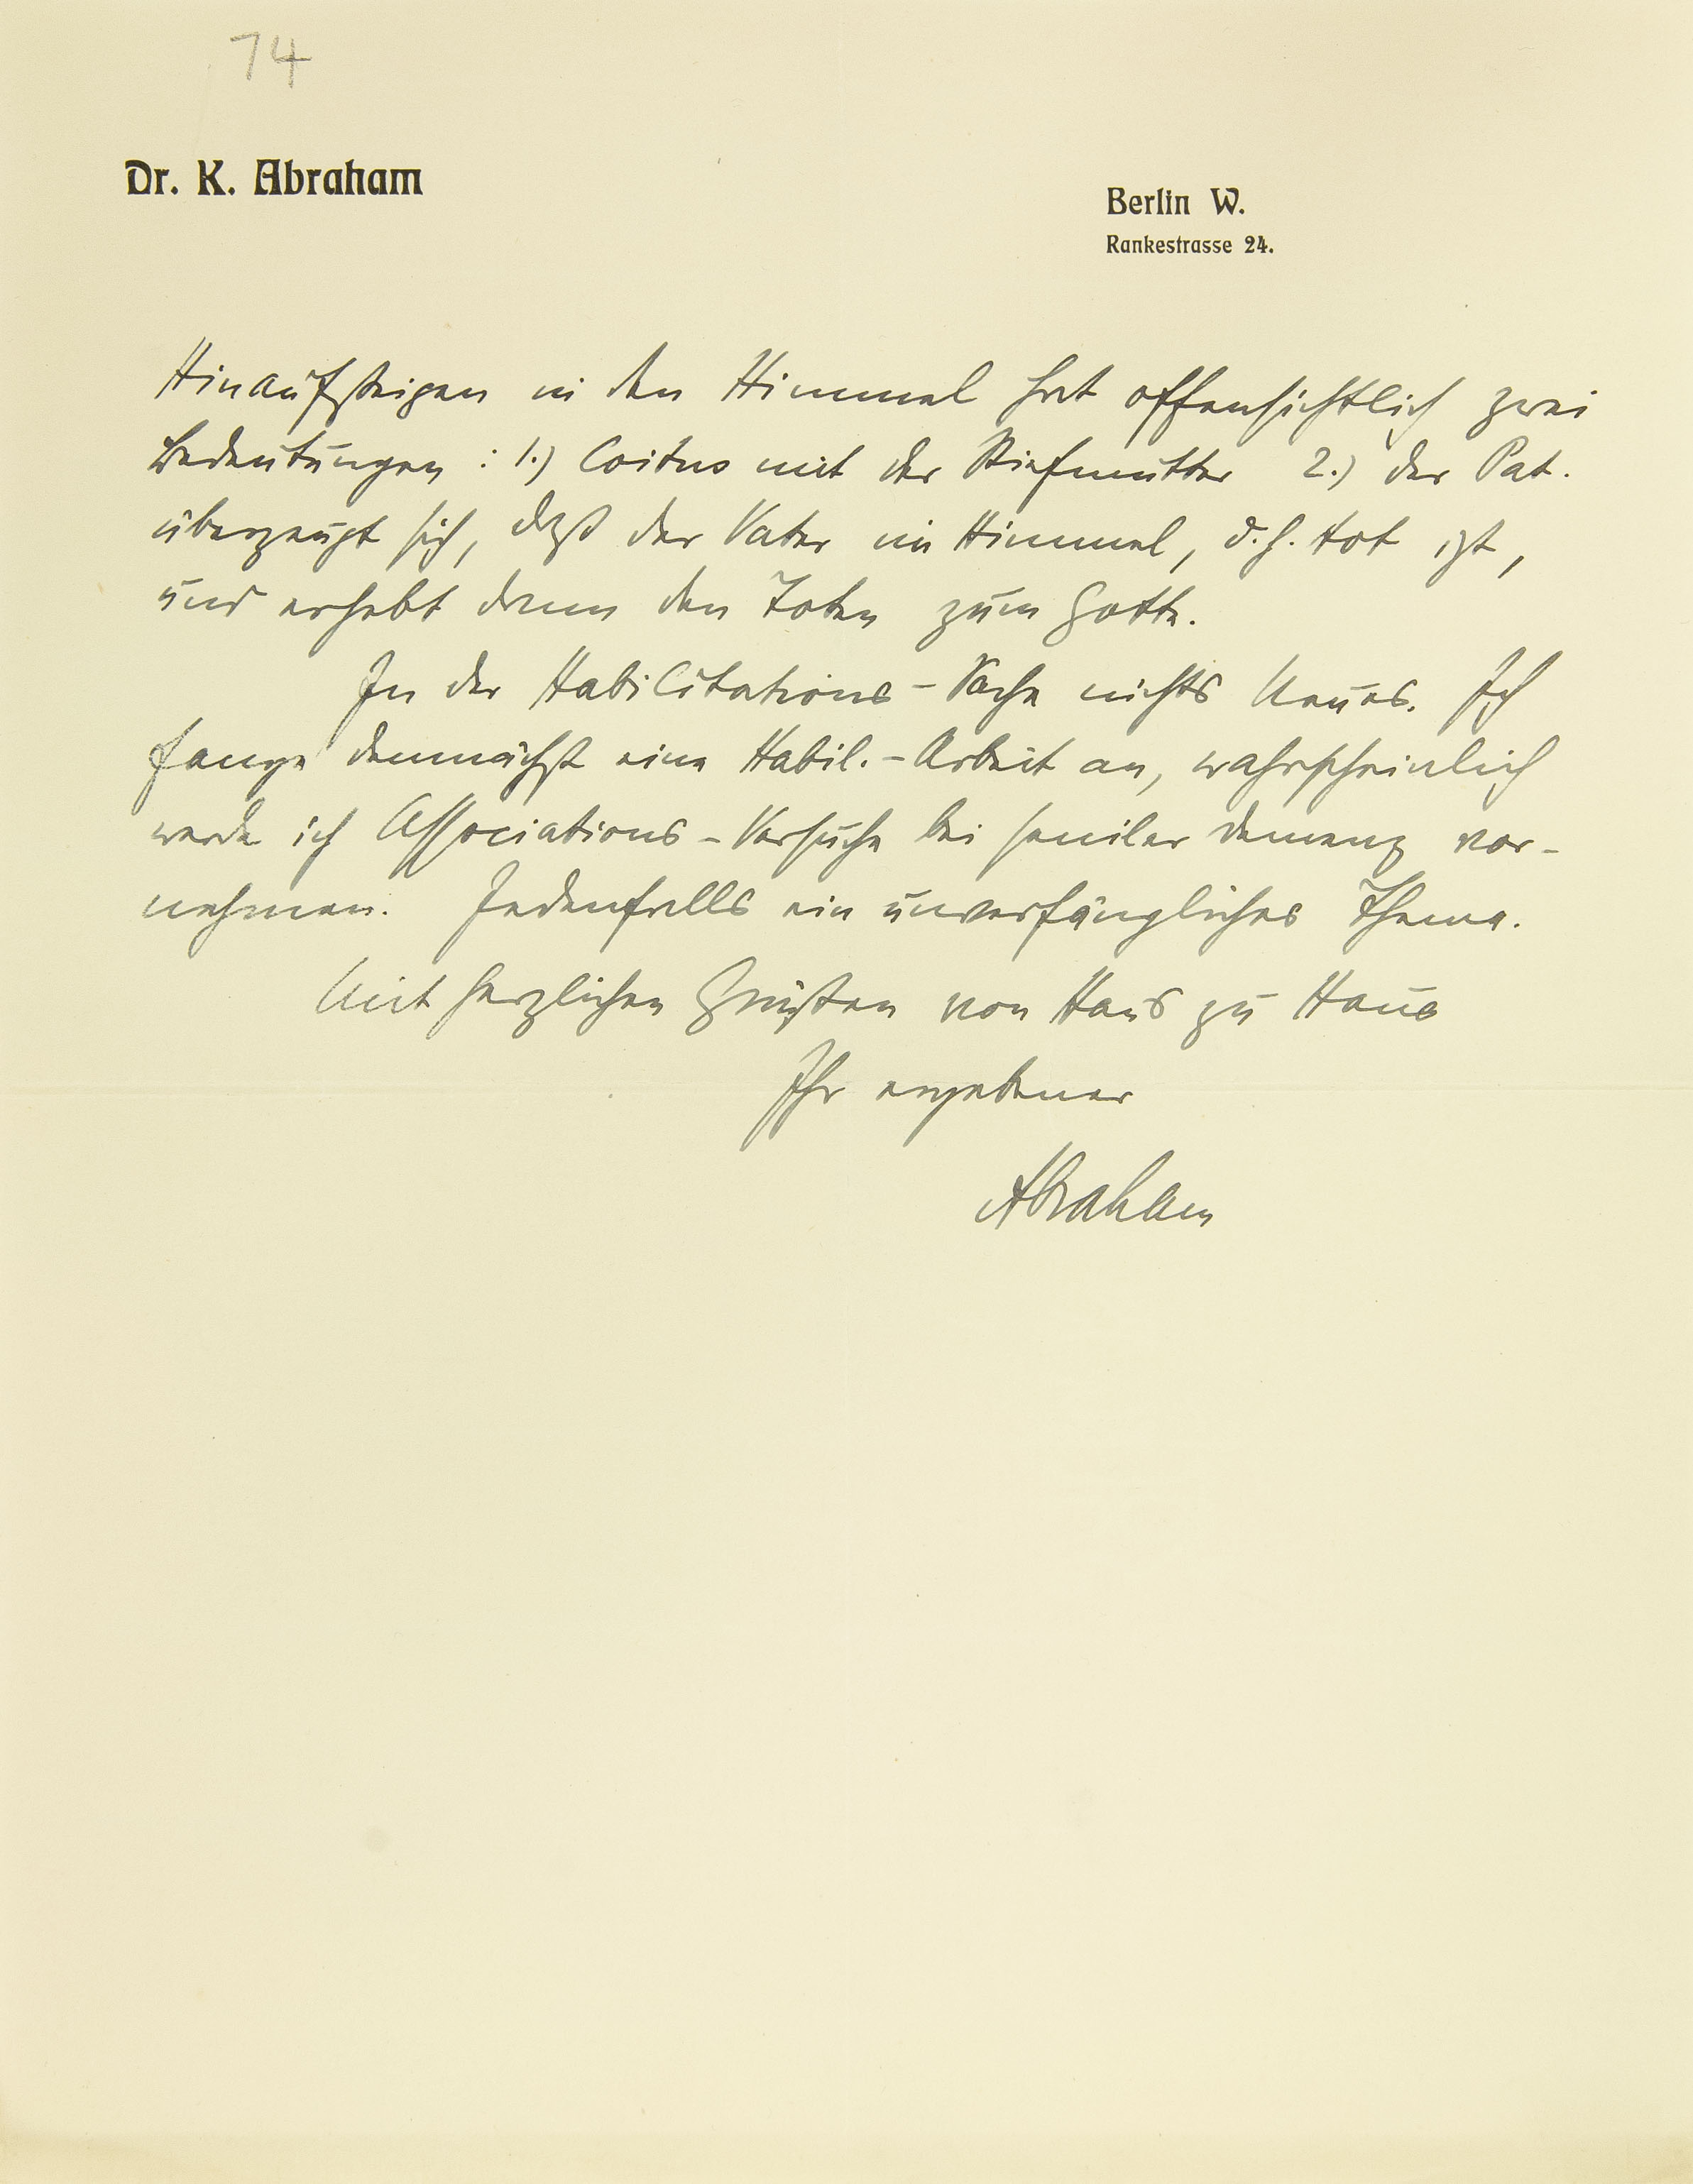 74
Dr. K. Abraham
Berlin W.
Rankestrasse 24.
Hinaufsteigen in den Himmel hat offensichtlich zwei
Bedeutungen: 1.) Coitus mit der Stiefmutter 2.) der Pat.
überzeugt sich, daß der Vater im Himmel, d.h. tot ist,
und erhebt dann den Toten zum Gotte.
In der Habilitations-Sache nichts Neues. Ich
fange demnächst eine Habil.-Arbeit an, wahrscheinlich
werde ich Associations-Versuche bei seniler Demenz vor-
nehmen. Jedenfalls ein unverfängliches Thema.
Mit herzlichen Grüßen von Haus zu Haus
Ihr ergebener
Abraham